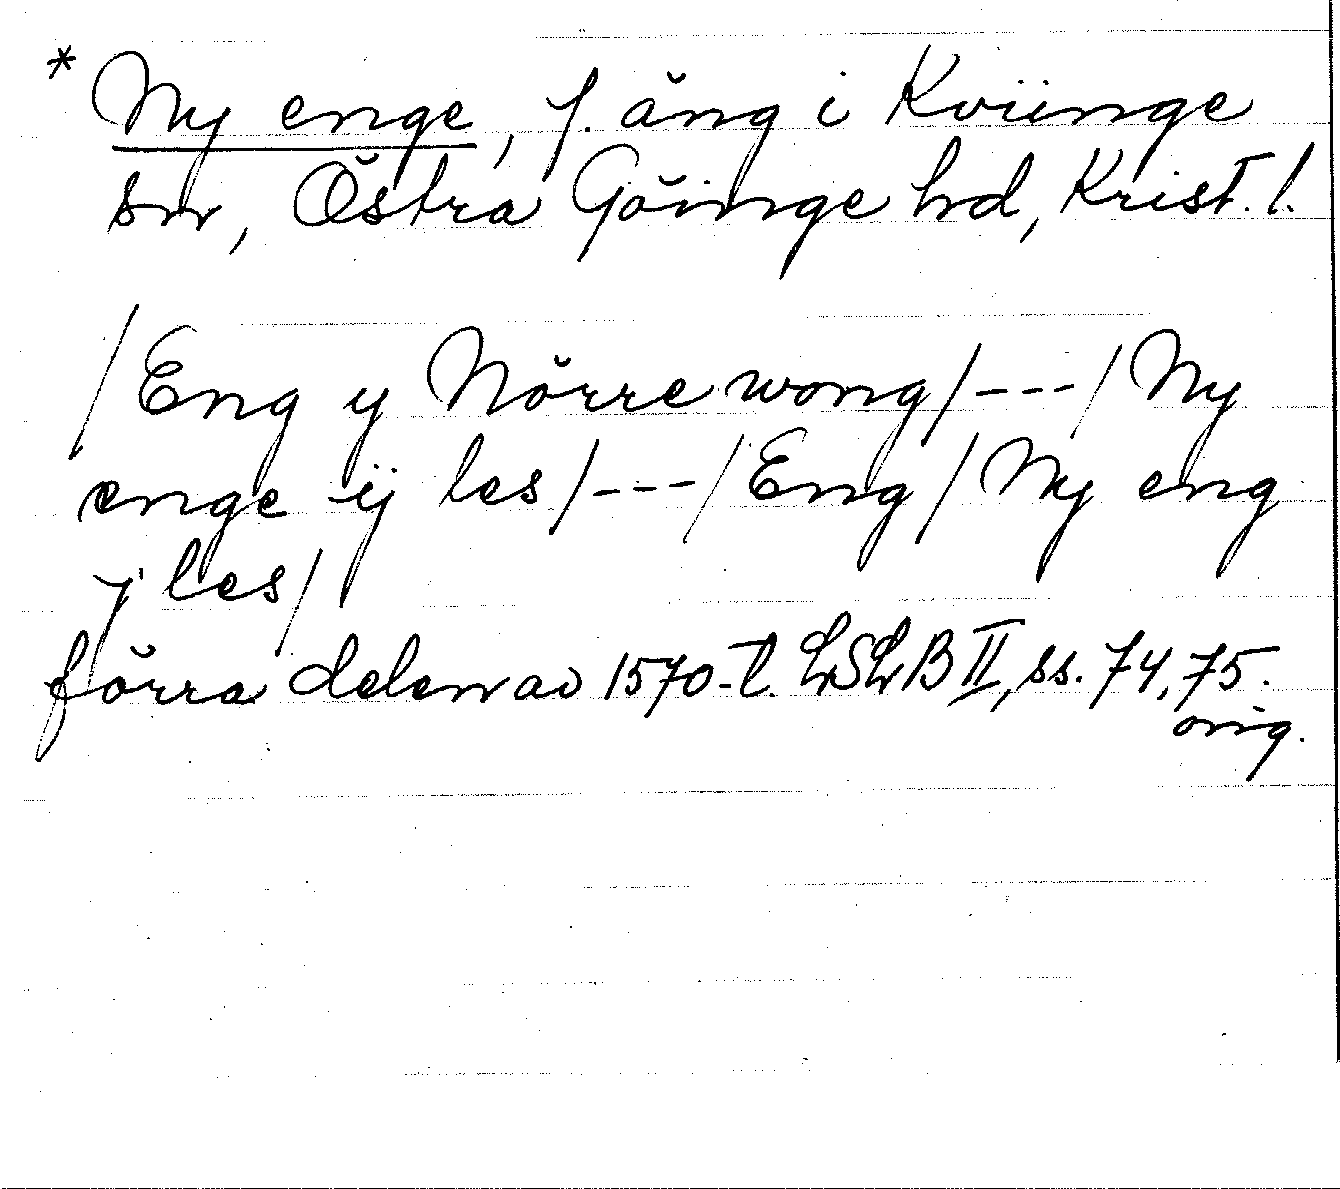 * Ny enge, f. äng i Kviinge
sn, Östra Göinge hd, Krist. l.
/Eng y Nörre wong/---/Ny
enge ij les/---/Eng/Ny eng
j les/
förra delen av 1570-t. LSLB II, ss. 74, 75.
orig.